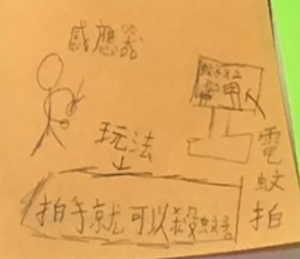 感應器
玩法
拍手就可以殺蚊子
電蚊拍